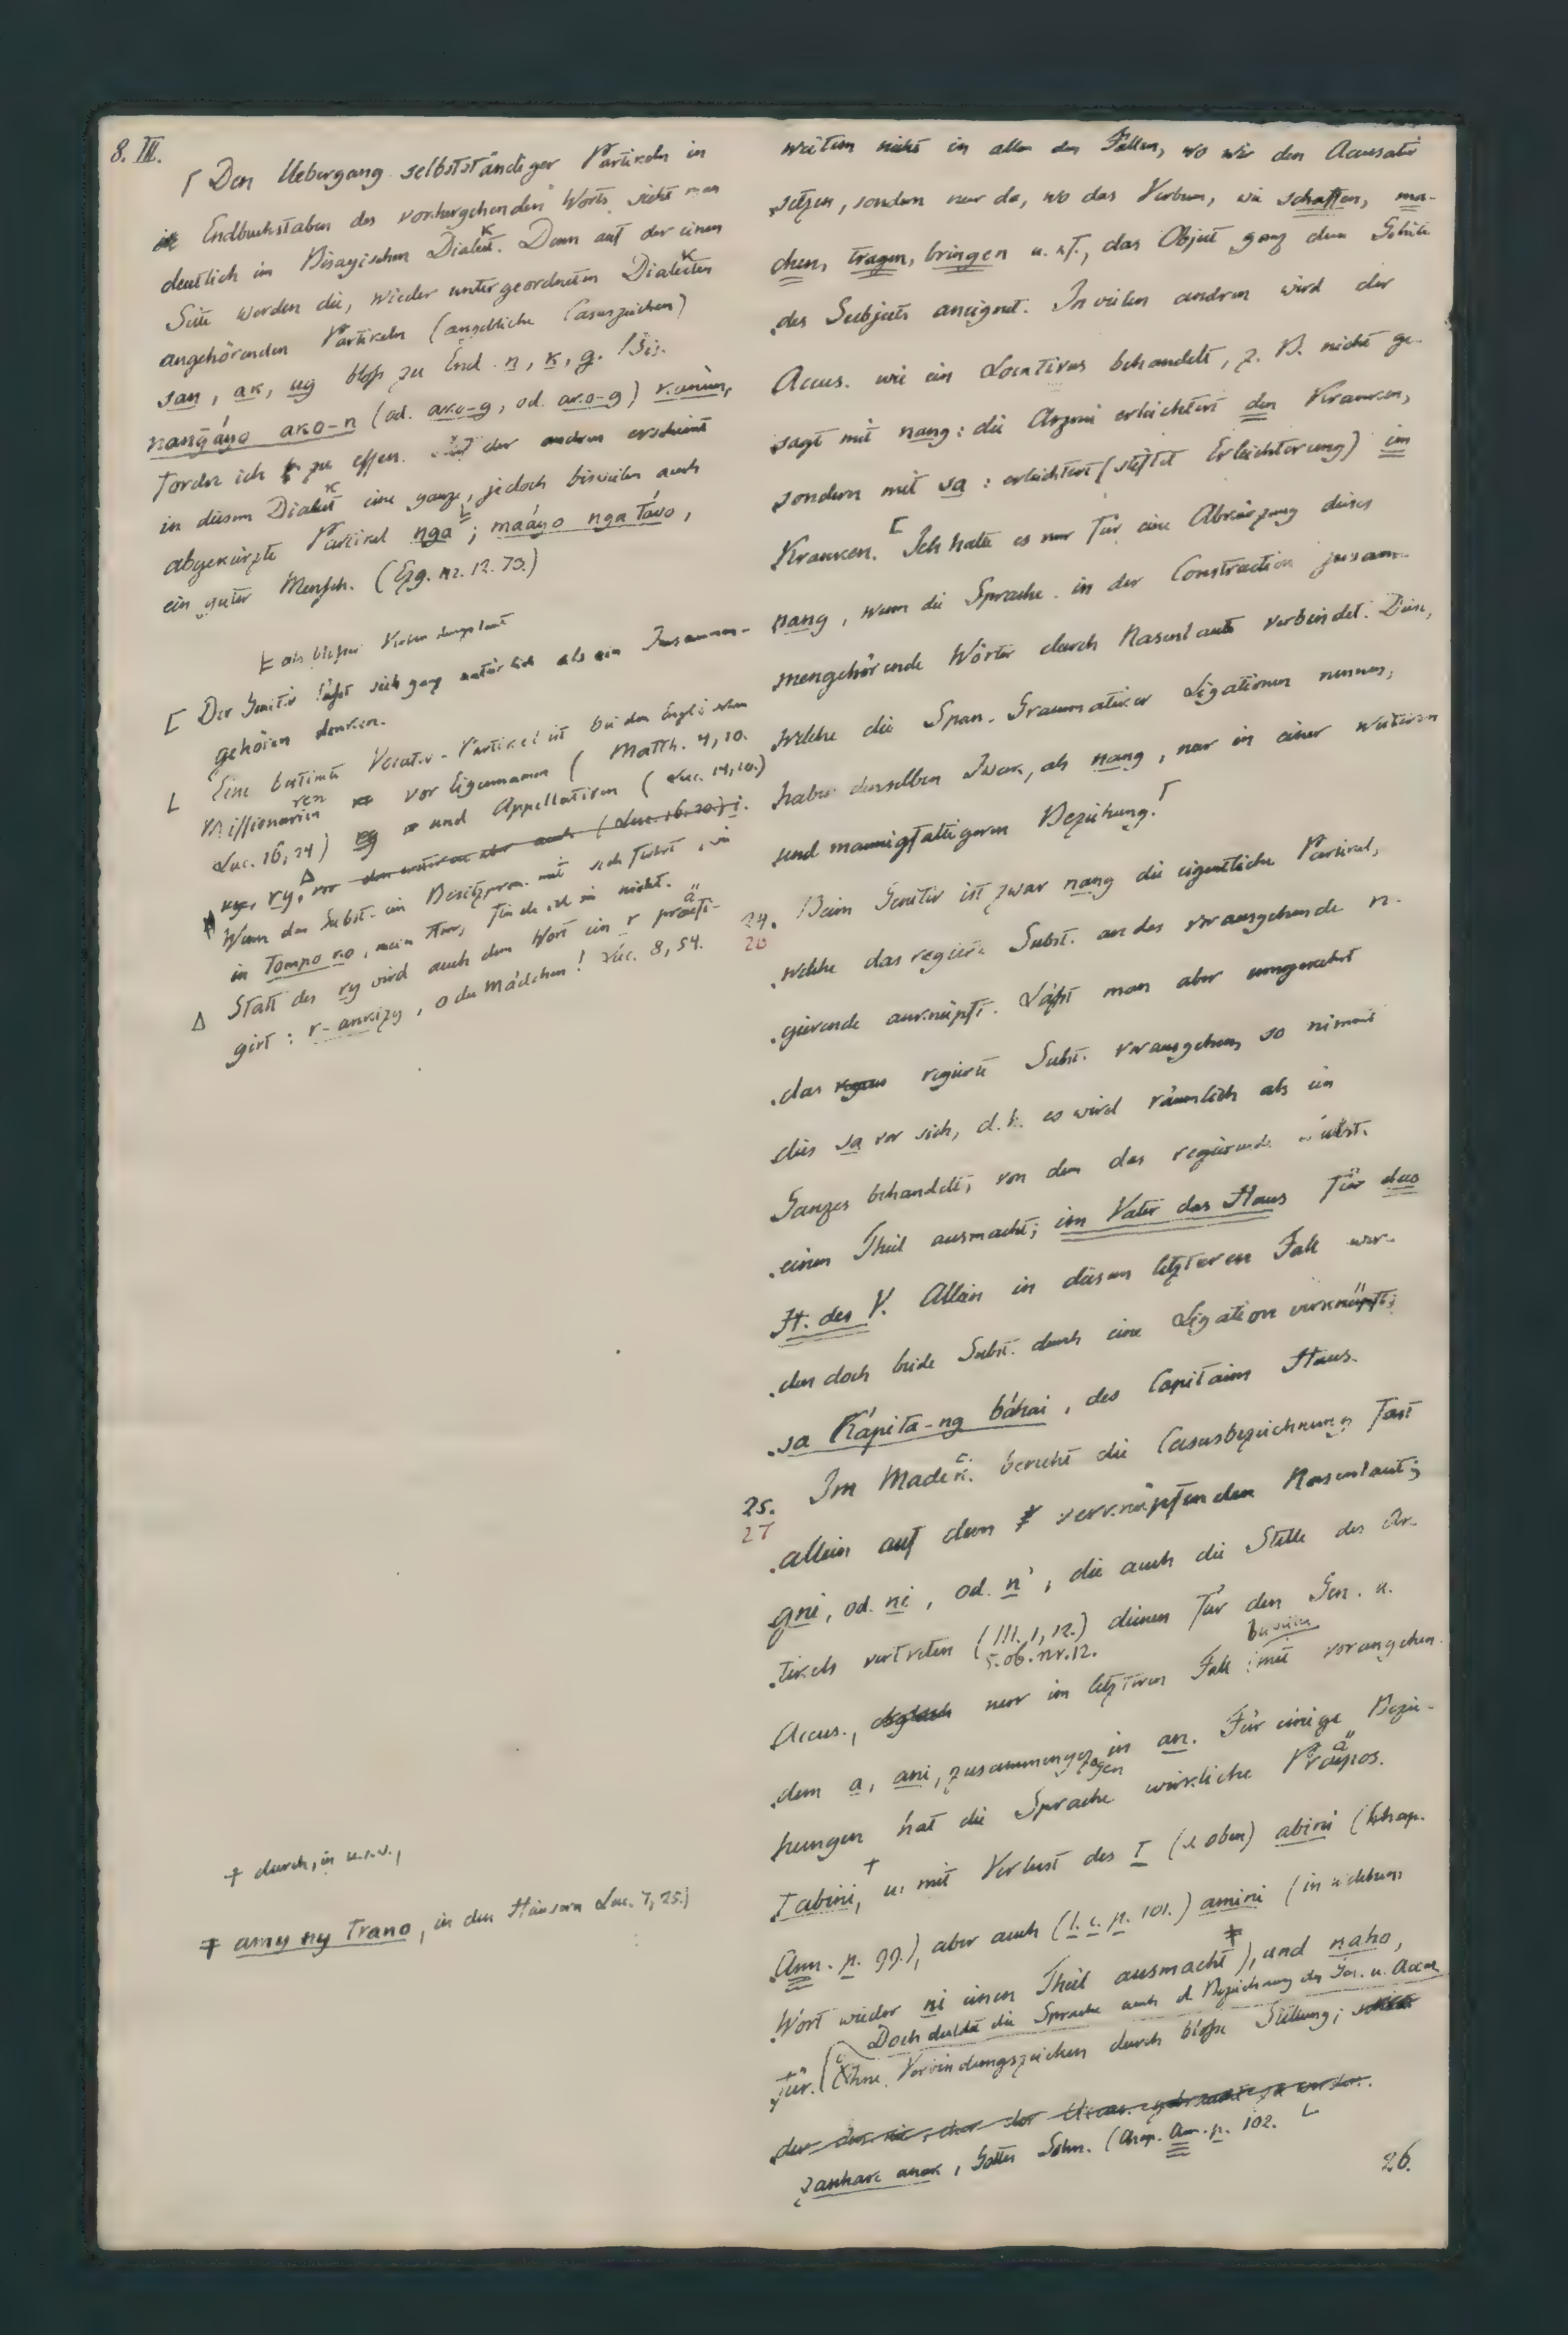 8. III.
⌈ Den Uebergang selbstständiger Partikeln in
Endbuchstaben des vorhergehenden Worts sieht man
deutlich im Bisayischen Dialekt. Denn auf der einen
Seite werden die, wieder untergeordneten Dialekten
angehörenden Partikeln (angebliche Casuszeichen)
san, ak, ug bloß zu End- n, k, g.
nangáyo ako-n (od. ako-g, od. ako-g)
fordre ich zu essen. Auf der andren erscheint
in diesem Dialekt eine ganze, jedoch bisweilen auch
abgekürzte Partikel nga; maáyo nga távo,
ein guter Mensch. (Ezg. nr. 12. 73.)
als bloßer
[ Der Genitiv läßt sich ganz natürlich als ein Zusammen-
gehören denken.
L Eine bestimte Vocativ-Partikel ist bei den Englischen
Missionarien vor Eigennamen (Matth. 4, 10.
Luc. 16, 24) und Appellativen (Luc. 14, 10.)
ry, (Luc. 16, 20) i.
Wenn das Subst. ein Besitzpron. mit sich führt, wie
in Tompo ko, mein Herr, finde ich sie nicht.
Δ Statt des ry wird auch dem Wort ein r präfi-
girt: r-ankizy, o du Mädchen! Luc. 8, 54.
+ durch, in u.s.w.,
‡ amy ny Trano, in den Häusern Luc. 7, 25.)
weitem nicht in allen den Fällen, wo wir den Accusativ
setzen, sondern nur da, wo das Verbum, wie schaffen, ma-
chen, tragen, bringen u. s. f., das Object ganz dem Gebiete
des Subjects aneignet. In vielen andren wird der
Accus. wie ein Locativus behandelt, z. B. nicht ge-
sagt mit nang: die Arznei erleichtert den Kranken,
sondern mit sa: erleichtert (stiftet Erleichterung) im
Kranken. [ Ich halte es nur für eine Abkürzung dieses
nang, wenn die Sprache in der Construction zusam-
mengehörende Wörter durch Nasenlaute verbindet. Diese,
welche die Span. Grammatiker Ligationen nennen,
haben denselben Zweck, als nang, nur in einer weiteren
und mannigfaltigeren Beziehung. ⌈
24. Beim Genitiv ist zwar nang die eigentliche Partikel,
20
welche das regierte Subst. an das vorausgehende re-
gierende anknüpft. Läßt man aber umgekehrt
das regierte Subst. vorausgehen, so nimmt
dies sa vor sich, d. h. es wird räumlich als ein
Ganzes behandelt, von dem das regierende Subst.
einen Theil ausmacht; im Vater das Haus für das
H. des V. Allein in diesem letzteren Fall wer-
den doch beide Subst. durch eine Ligation verknüpft;
sa Kápita-ng báhai, des Capitains Haus.
25. Im Madec. beruht die Casusbezeichnung fast
27
allein auf dem verknüpfenden Nasenlaut;
gni, od. ni, od. n', die auch die Stelle des Ar-
tikels vertreten (III. 1, 12.) dienen für den Gen. u.
S. ob. nr. 12.
Accus., nur im letzteren Fall mit vorangehen-
dem a, ani, zusammengezogen in an. Für einige Bezie-
hungen hat die Sprache wirkliche Präpos.
Tabini, + u. mit Verlust des T (s. oben) abini (Chap.
Ann. p. 99.), aber auch (l. c. p. 101.) amini (in welchem
Wort wieder ni einen Theil ausmacht ‡), und naho,
für. Doch duldet die Sprache auch d. Bezeichnung des Gen. u. Accus.
ohne Verbindungszeichen durch bloße Stellung;
zanhare anak, Gottes Sohn. (Chap. Ann. p. 102. L
26.